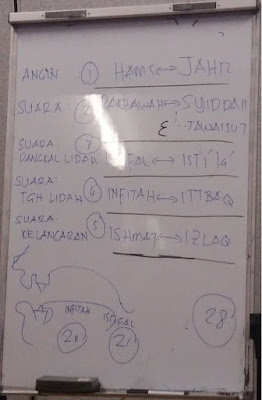 ANGIN ① HAMS ↔ JAHR
SUARA: ② RAKHAWAH ↔ SYIDDAH
ع TAWASUT
SUARA ③ ↔ ISTI'LA'
PANGKAL LIDAH
SUARA: ④ INFITAH ↔ ITTBAQ
TGH LIDAH
SUARA: ⑤ ISHMAT ↔ IZLAQ
KELANCARAN
INFITAH
ISTIFAL
28